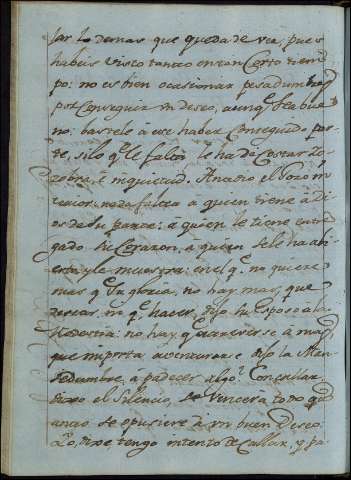 sar lo demas que queda de vea, pues
habeis visto tanto en tan Corto tiem
po: no es bien ocasionar pesadumbre
por Conseguir un deseo, aunq. sea bue
no: bastele á ese haber Conseguido par
te, si lo q. le falta le ha de Costar Zo
zobra, é inquietud. Anadio el Gozo in
terior: nada falta á quien tiene á Di
os de su parte: á quien le tiene entre
gado su Corazon: á quien se le ha abi
erto, y le muestra: en el q. no quiere
mas q. su gloria, no hay mas que
desear, ni q. hacer, dijo su Esposo á la
Modestia: no hay q. atreverse á mas,
que importa aventurarse dijo la Man
sedumbre, á padecer algo? Con callar
dixo el Silencio, se vencera todo q.to
ancio se opusiere á un buen Deseo.
Yo, dixe, tengo intento de Callar, y pa